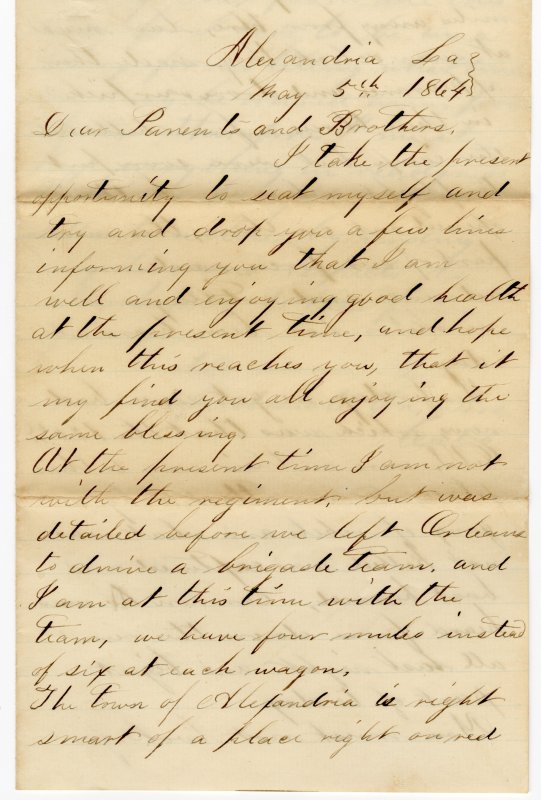 Alexandria La
May 5th 1864
Dear Parents and Brothers,
I take the present
opportunity to seat myself and
try and drop you a few lines
informing you that I am
well and enjoying good health
at the present time, and hope
when this reaches you, that it
my find you all enjoying the
same blessing.
At the present time I am not
with the regiment, but was
detailed before we left Orleans
to drive a brigade team. and
I am at this time with the
team, we have four mules instead
of six at each wagon.
The town of Alexandria is right
smart of a place right on red